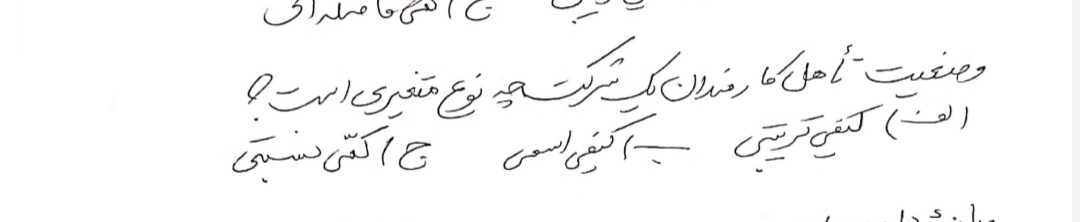 ج) کمی فاصله ای
وضعیت تأهل کارمندان یک شرکت چه نوع متغیری است؟
الف) کیفی ترتیبی ب) کیفی اسمی ج) کمّی نسبتی